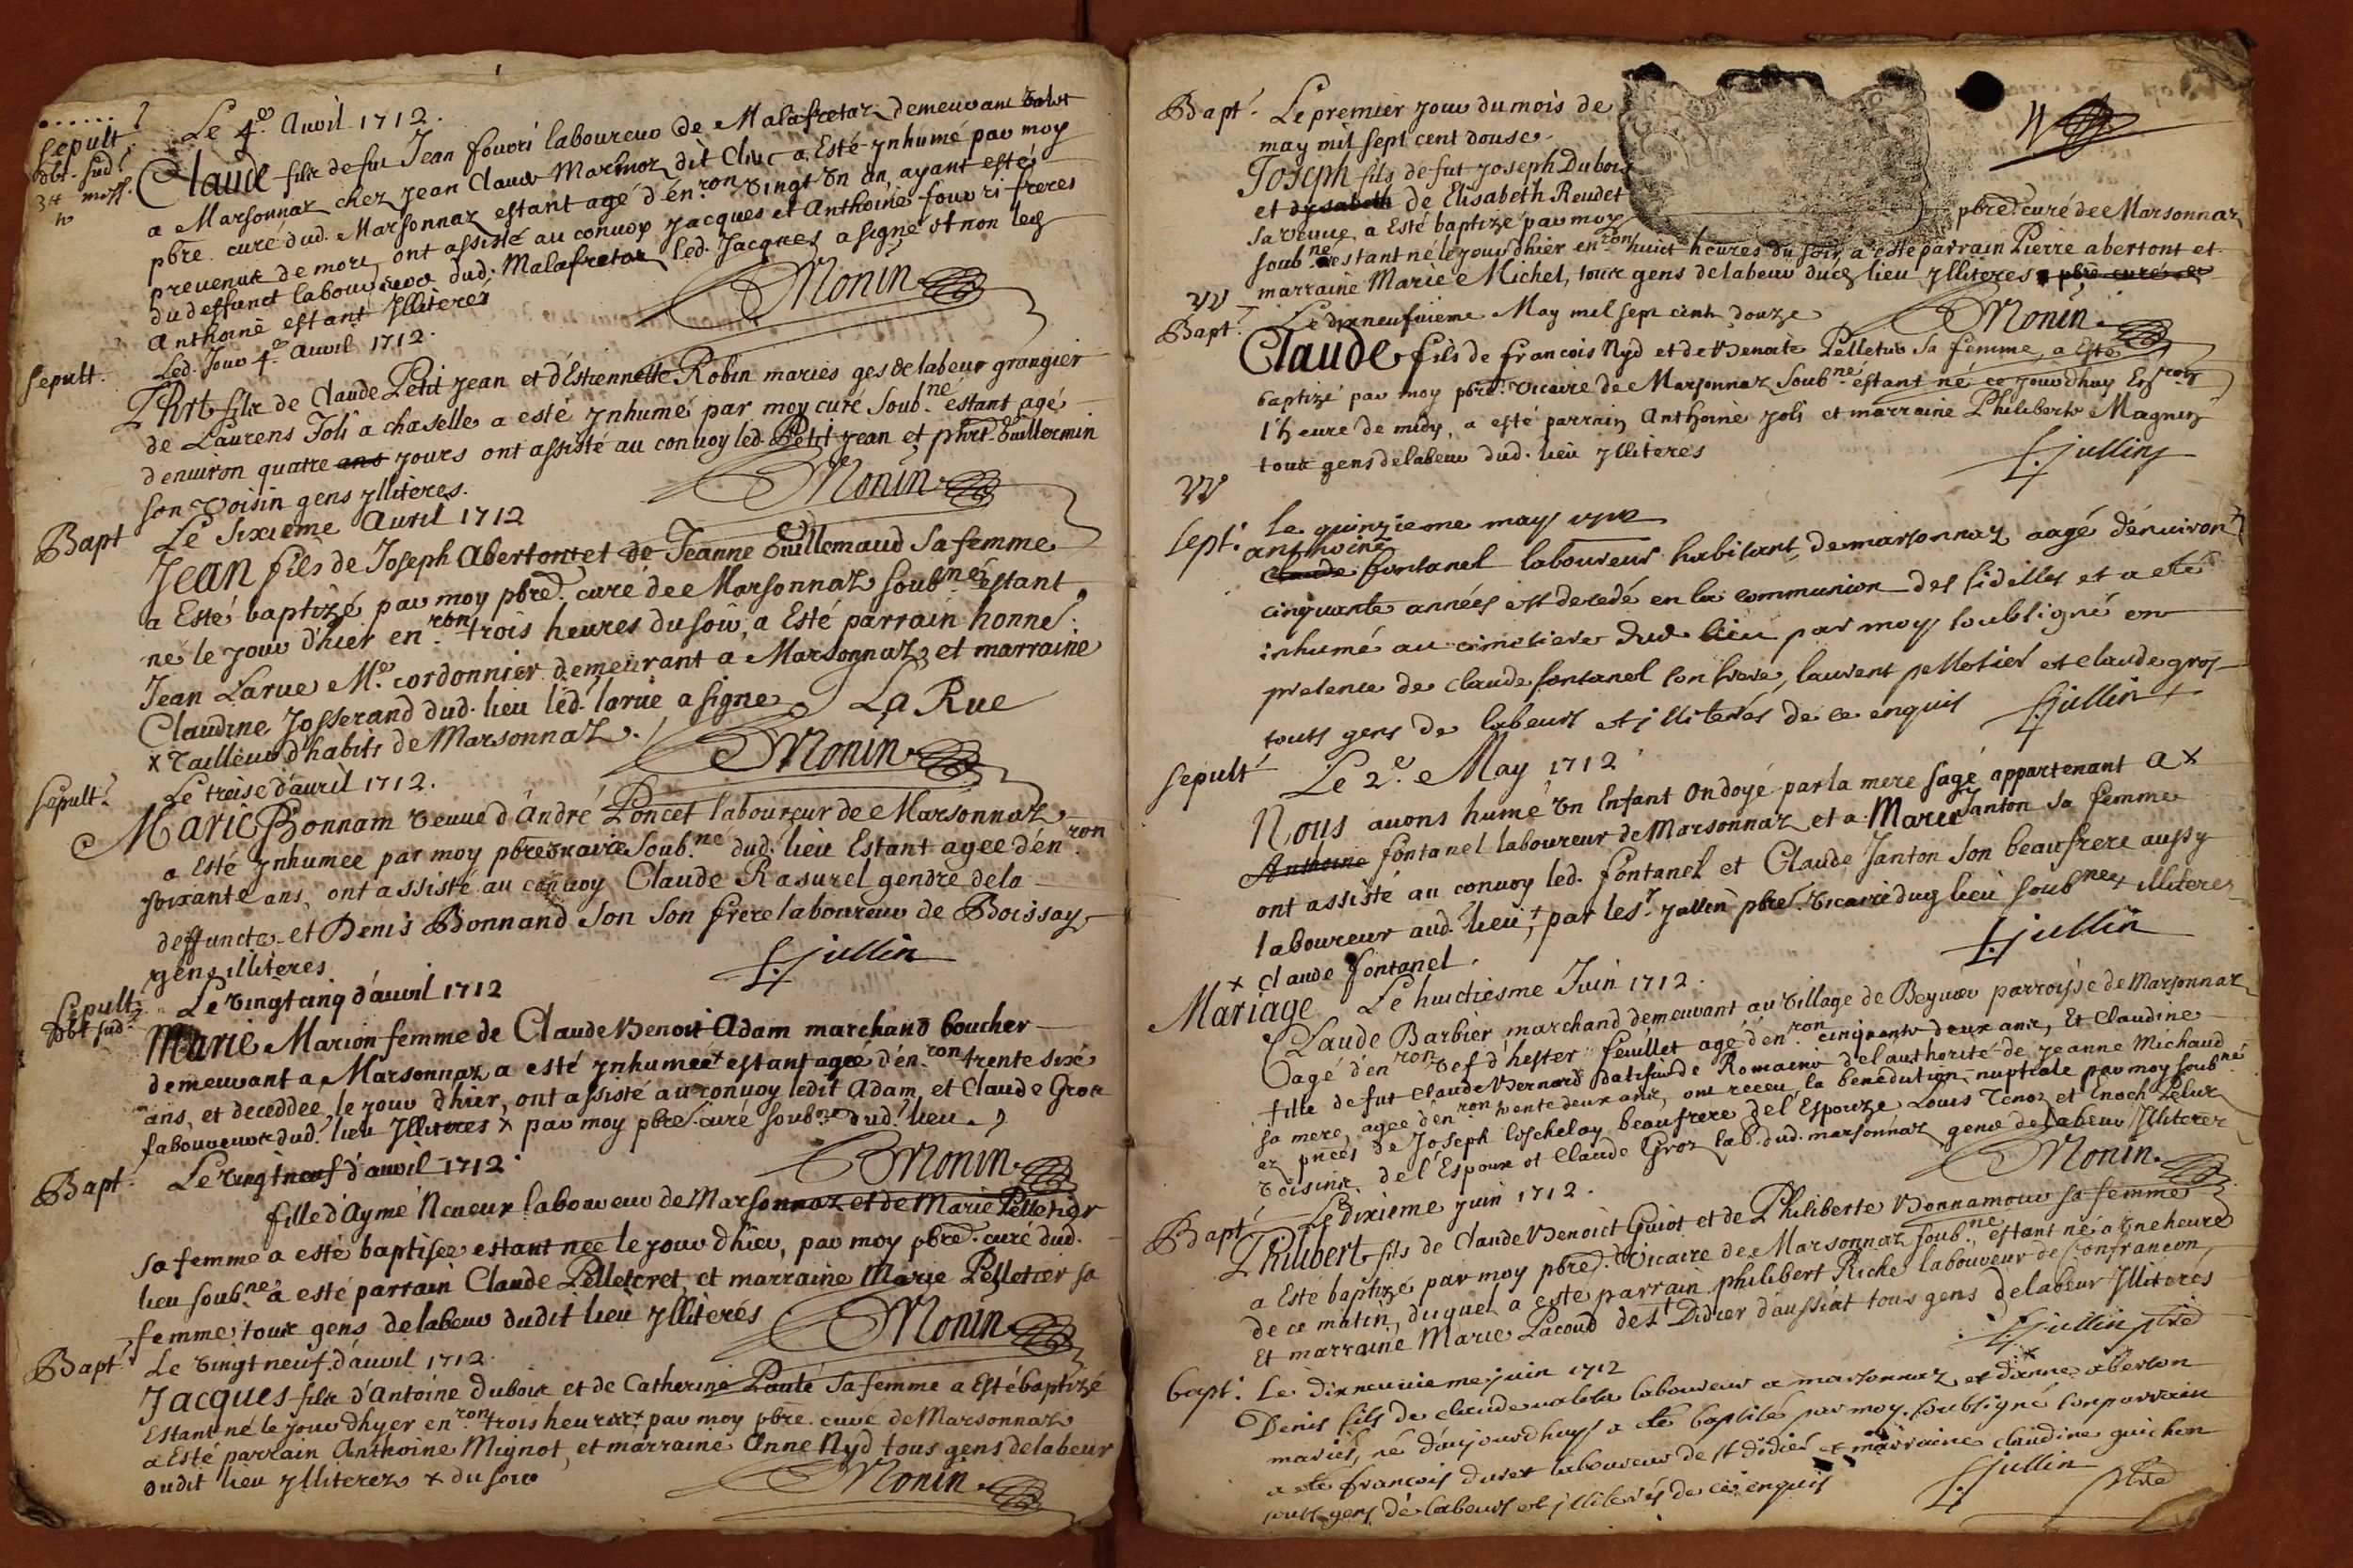 Sepult.
Le 4.e Avril 1712.
Claude fils de fut Jean fouvri laboureur de Malafretaz demeurant valet
a Marsonnaz chez Jean Claude Marmoz dit Cluc a Esté ynhumé par moy
pbre. curé dud. Marsonnaz estant agé d'én.ron vingt un an, ayant esté
prevenut de mort, ont assisté au convoy Jacques et Anthoine fouvri freres
du deffunct laboureurs dud. Malafretaz led. Jacques a signé et non led.
Anthoine estant Illiteré
Monin
Sepult.
Led. Jour 4.e Auvil 1712.
Phrt fils de Claude Petit Jean et d'Estiennette Robin mariés ges de labeur grangier
de Laurens Joli a chaselle a esté ynhumé par moy curé Soub.né estant agé
denuiron quatre ans yours ont assisté au convoy led. Petit Jean et phrt. Guillermin
son Voisin gens ylliteres.
Monin
Bapt
Le Sixieme Auril 1712
Jean fils de Joseph Abertont et de Jeanne Guillemaud Sa femme
a Esté baptizé par moy pbre. curé de Marsonnaz soub.né estant
né le Jour d'hier en.ron trois heures du soir, a Esté parrain honne.
Jean Larue M.e cordonnier demeurant a Marsonnaz et marraine
Claudine Josserand dud. lieu led. larue a signe
La Rue
x Tailleur d'habits de Marsonnaz.
Monin
Sepult.
Le treise d'auril 1712.
Marie Bonnam veuve d'André Poncet laboureur de Marsonnaz
a Esté ynhumee par moy pbre vicaire Soub.né dud. lieu Estant agee d'én.ron
soixante ans, ont assisté au convoy Claude Rasurel gendre dela
deffuncte et Denis Bonnand Son Son frere laboureur de Boissay
gens illiteres
f. jullin
Sepult.
Le Vingt cinq d'auvil 1712
Marie Marion femme de Claude Benoit Adam marchand boucher
demeurant a Marsonnaz a esté ynhumée x estant agée d'én.ron trente sixé
ans, et deceddee le jour d'hier, ont assisté au convoy ledit Adam et Claude Gros
laboureurs dud. lieu Illiteres x par moy pbre. curé soub.né dud. lieu.
Monin
Bapt.
Le Vingt neuf d'auvil 1712
fille d'Aymé Neveux laboureur de Marsonnaz et de Marie Pelletier
sa femme a esté baptisee estant nee le jour d'hier, par moy pbre. curé dud.
lieu soub.né a esté parrain Claude Pelleteret, et marraine Marie Pelletier sa
femme tour gens de labeur dudit lieu ylliterés
Monin
Bapt.
Le Vingt neuf d'auvil 1712.
Jacques fils d'Antoine Dubois et de Catherine Pauté Sa femme a Esté baptizé
Estant né le jour d'hyer en.ron trois heures x par moy pbre. curé de Marsonnaz
a Esté parrain Anthoine Mignot, et marraine Anne Nyd tous gens de labeur
dudit lieu ylliterez x du soir
Monin
Bapt.
Le premier jour du mois de
may mil sept cent douse
Joseph fils de fut Joseph Dubois
et de Elisabeth Reudet
sa veuve, a Esté baptizé par moy pbre. curé de Marsonnaz
soub.né estant né le jour d'hier en.ron huict heures du soir, a esté parrain Pierre abertont et
marraine Marie Michel, tour gens de labeur duz lieu ylliteres
Monin
Bapt.
Le dixneufuieme May mil sept cent douze
Claude fils de francois Nyd et de Benoite Pelletier Sa femme, a Esté
baptizé par moy pbre. vicaire de Marsonnaz Soub.né estant né ce jour d'huy En.ron
l'heure de midy, a esté parrain Anthoine Joli et marraine Philiberte Magnin
tour gens de labeur dud. lieu ylliteres
f. jullin
Sept.
le quinzieme may 1712
anthoine
Claude fontanel laboureur habitant de marsonnaz aagé d'enuiron
cinquante années est decedé en la communion des fidelles et a eté
inhumé au cimetiere dud. lieu par moy soubsigné en
presence de claude fontanel son frere, laurent pelletier et claude gros
touts gens de labeurs et illiterés de ce enquis
f. jullin
Sepult
Le 2.e May 1712
Nous auons humé un Enfant Ondoyé par la mere sage appartenant a x
Anthoine fontanel laboureur de Marsonnaz et a Marie Janton sa femme
ont assisté au convoy led. fontanel et Claude Janton son beaufrere aussy
laboureur aud. lieu, + par les.r Jullin pbre. vicaire dug lieu soub.né + illiteres
x Claude fontanel.
f. jullin
Mariage
Le huictiesme Juin 1712.
Claude Barbier marchand demeurant au Village de Beyuiev parroisse de Marsonnaz
agé d'én.ron vef d'hester feuillet agé d'én.ron cinquante deux ans, Et Claudine
fille de fut Claude Bernard Datifaud de Romains de l'authorité de Jeanne Michaud
sa mere, agee d'én.ron trente deux ans, ont receu la benediction nuptiale par moy soub.né
ez pnces de Joseph loschelay beaufrere de l'Espouze Louis Tenoz et Enoch Pelux
voisins de l'Espoux et Claude Groz lab. dud. marsonnaz gens de labeur Illiterez
Monin
Bapt.
Le dixieme juin 1712.
Philibert fils de Claude Benoict Guiot et de Philiberte Bonnamour sa femme
a Esté baptizé par moy pbre. Vicaire de Marsonnaz soub.né estant né a une heure
de ce matin, duquel a este parrain philibert Riche laboureur de Confrancon,
Et marraine Marie Pacoud de S.t Didier d'aussiat tous gens de labeur Illiterés
f. jullin pbre
bapt.
Le dixneuuieme juin 1712
Denis fils de claude laboureur a marsonnaz et dianne aberton
mariés, né d'aujourd'huy a eté baptisé par moy soubsigné son parrain
a eté francois duret laboureur de st didier et marraine claudine guichon
touts gens de labeurs et illiterés de ce enquis
f. jullin pbre